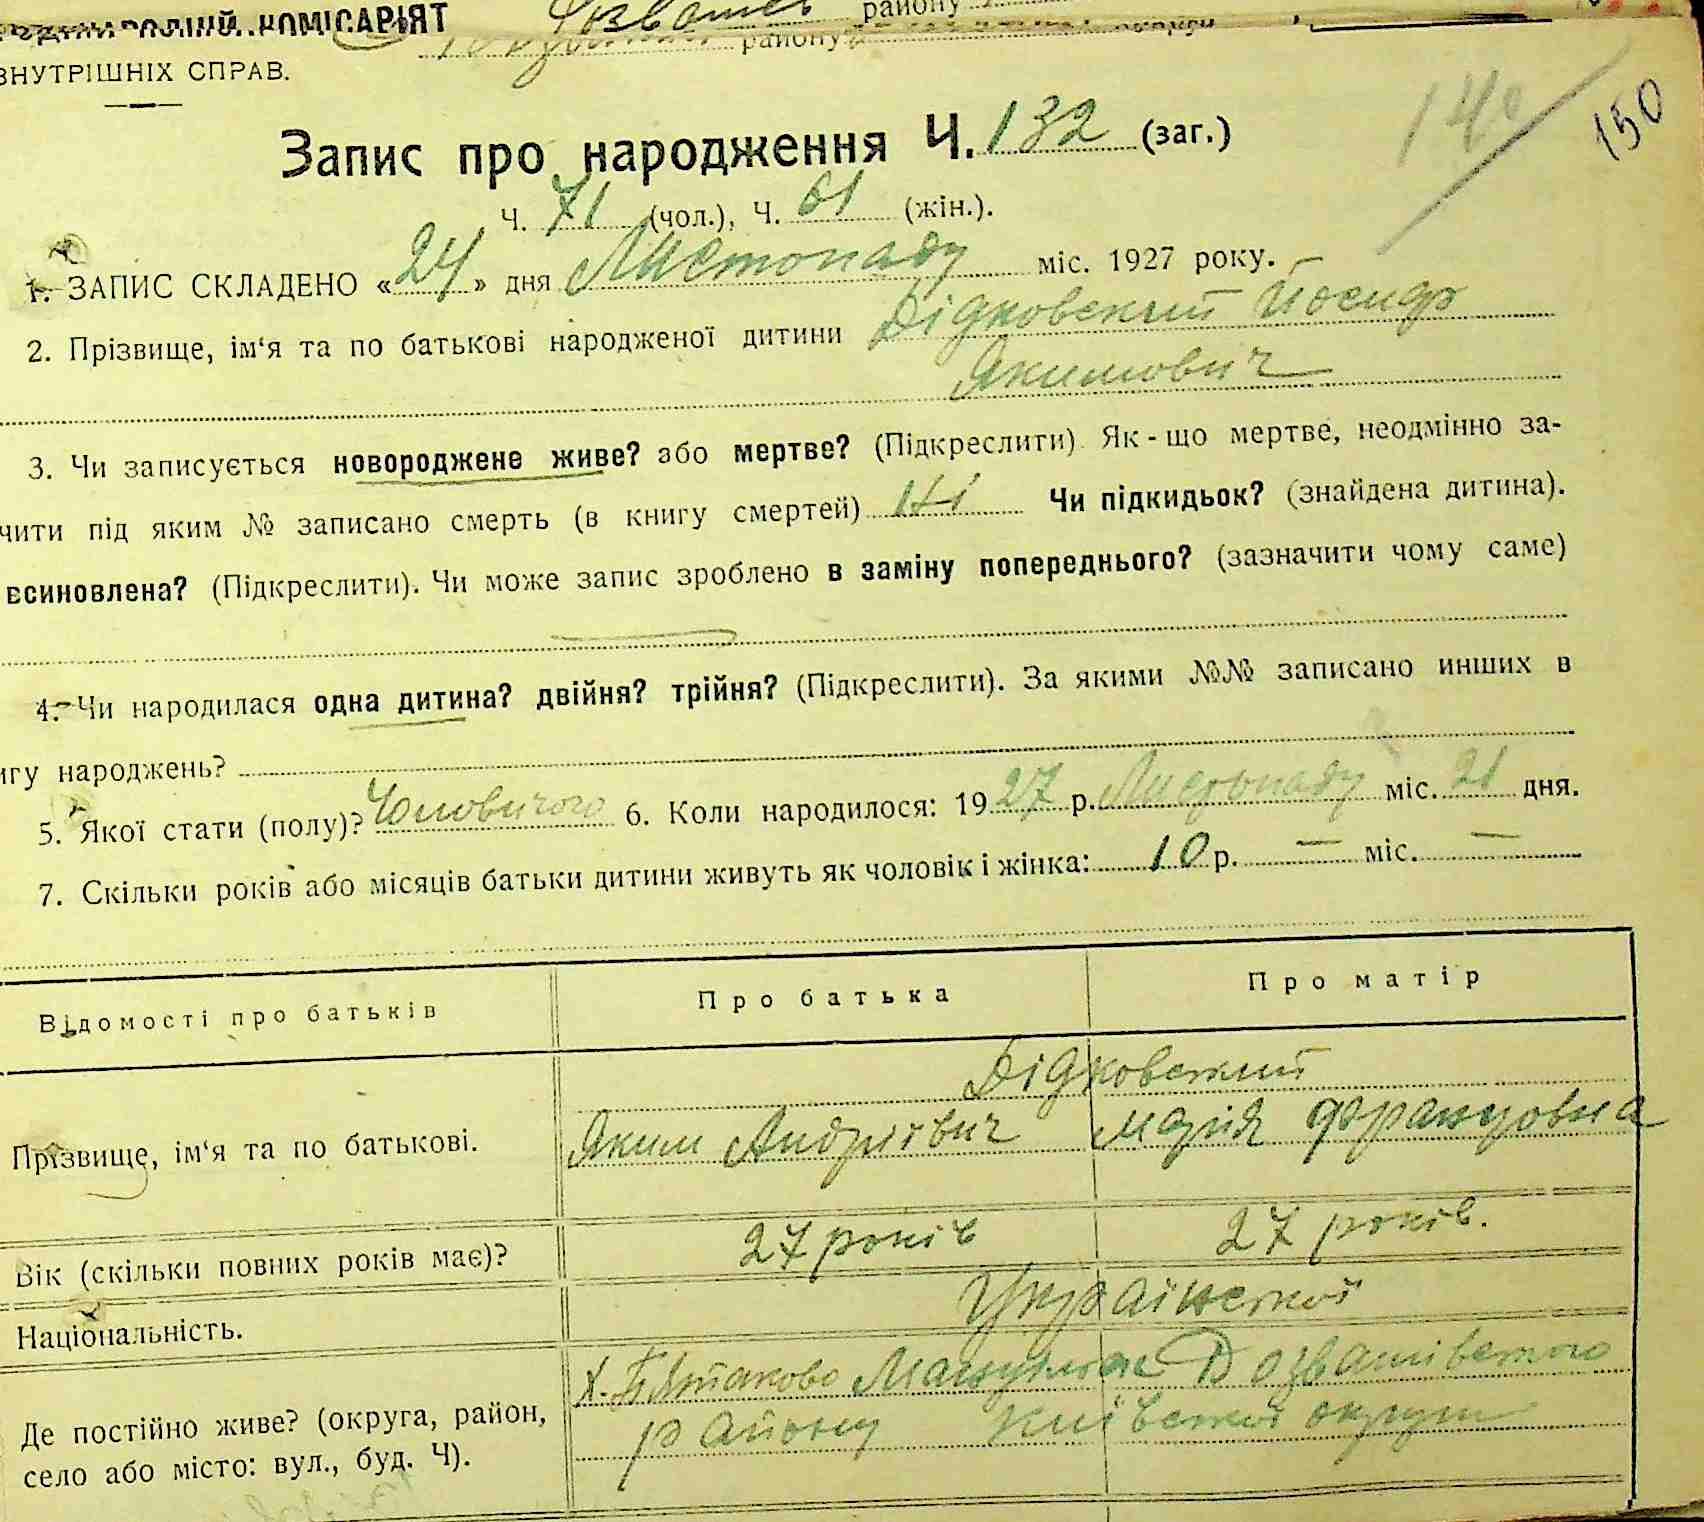 НАРОДНИЙ КОМІСАРІЯТ
району
району округи
ВНУТРІШНІХ СПРАВ.
Запис про народження Ч. 132 (заг.)
150
Ч. 71 (чол.), Ч. 61 (жін.).
1. ЗАПИС СКЛАДЕНО «24» дня Листопаду міс. 1927 року.
2. Прізвище, ім‘я та по батькові народженої дитини Дідковский Йосиф
Якимович
3. Чи записується новороджене живе? або мертве? (Підкреслити) Як-що мертве, неодмінно за-
чити під яким № записано смерть (в книгу смертей) Ні Чи підкидьок? (знайдена дитина).
всиновлена? (Підкреслити). Чи може запис зроблено в заміну попереднього? (зазначити чому саме)
4. Чи народилася одна дитина? двійня? трійня? (Підкреслити). За якими №№ записано инших в
игу народжень?
5. Якої стати (полу)? Чоловичого 6. Коли народилося: 1927 р. Листопаду міс. 21 дня.
7. Скільки років або місяців батьки дитини живуть як чоловік і жінка: 10 р. — міс. —
Відомості про батьків Про батька Про матір
Дідковский
Прізвище, ім‘я та по батькові. Яким Андріївич Марія Францовна
Вік (скільки повних років має)? 27 років 27 років.
Національність. Української
х. Пятаково Розваживского
Де постійно живе? (округа, район, району Київської округи
село або місто: вул., буд. Ч).